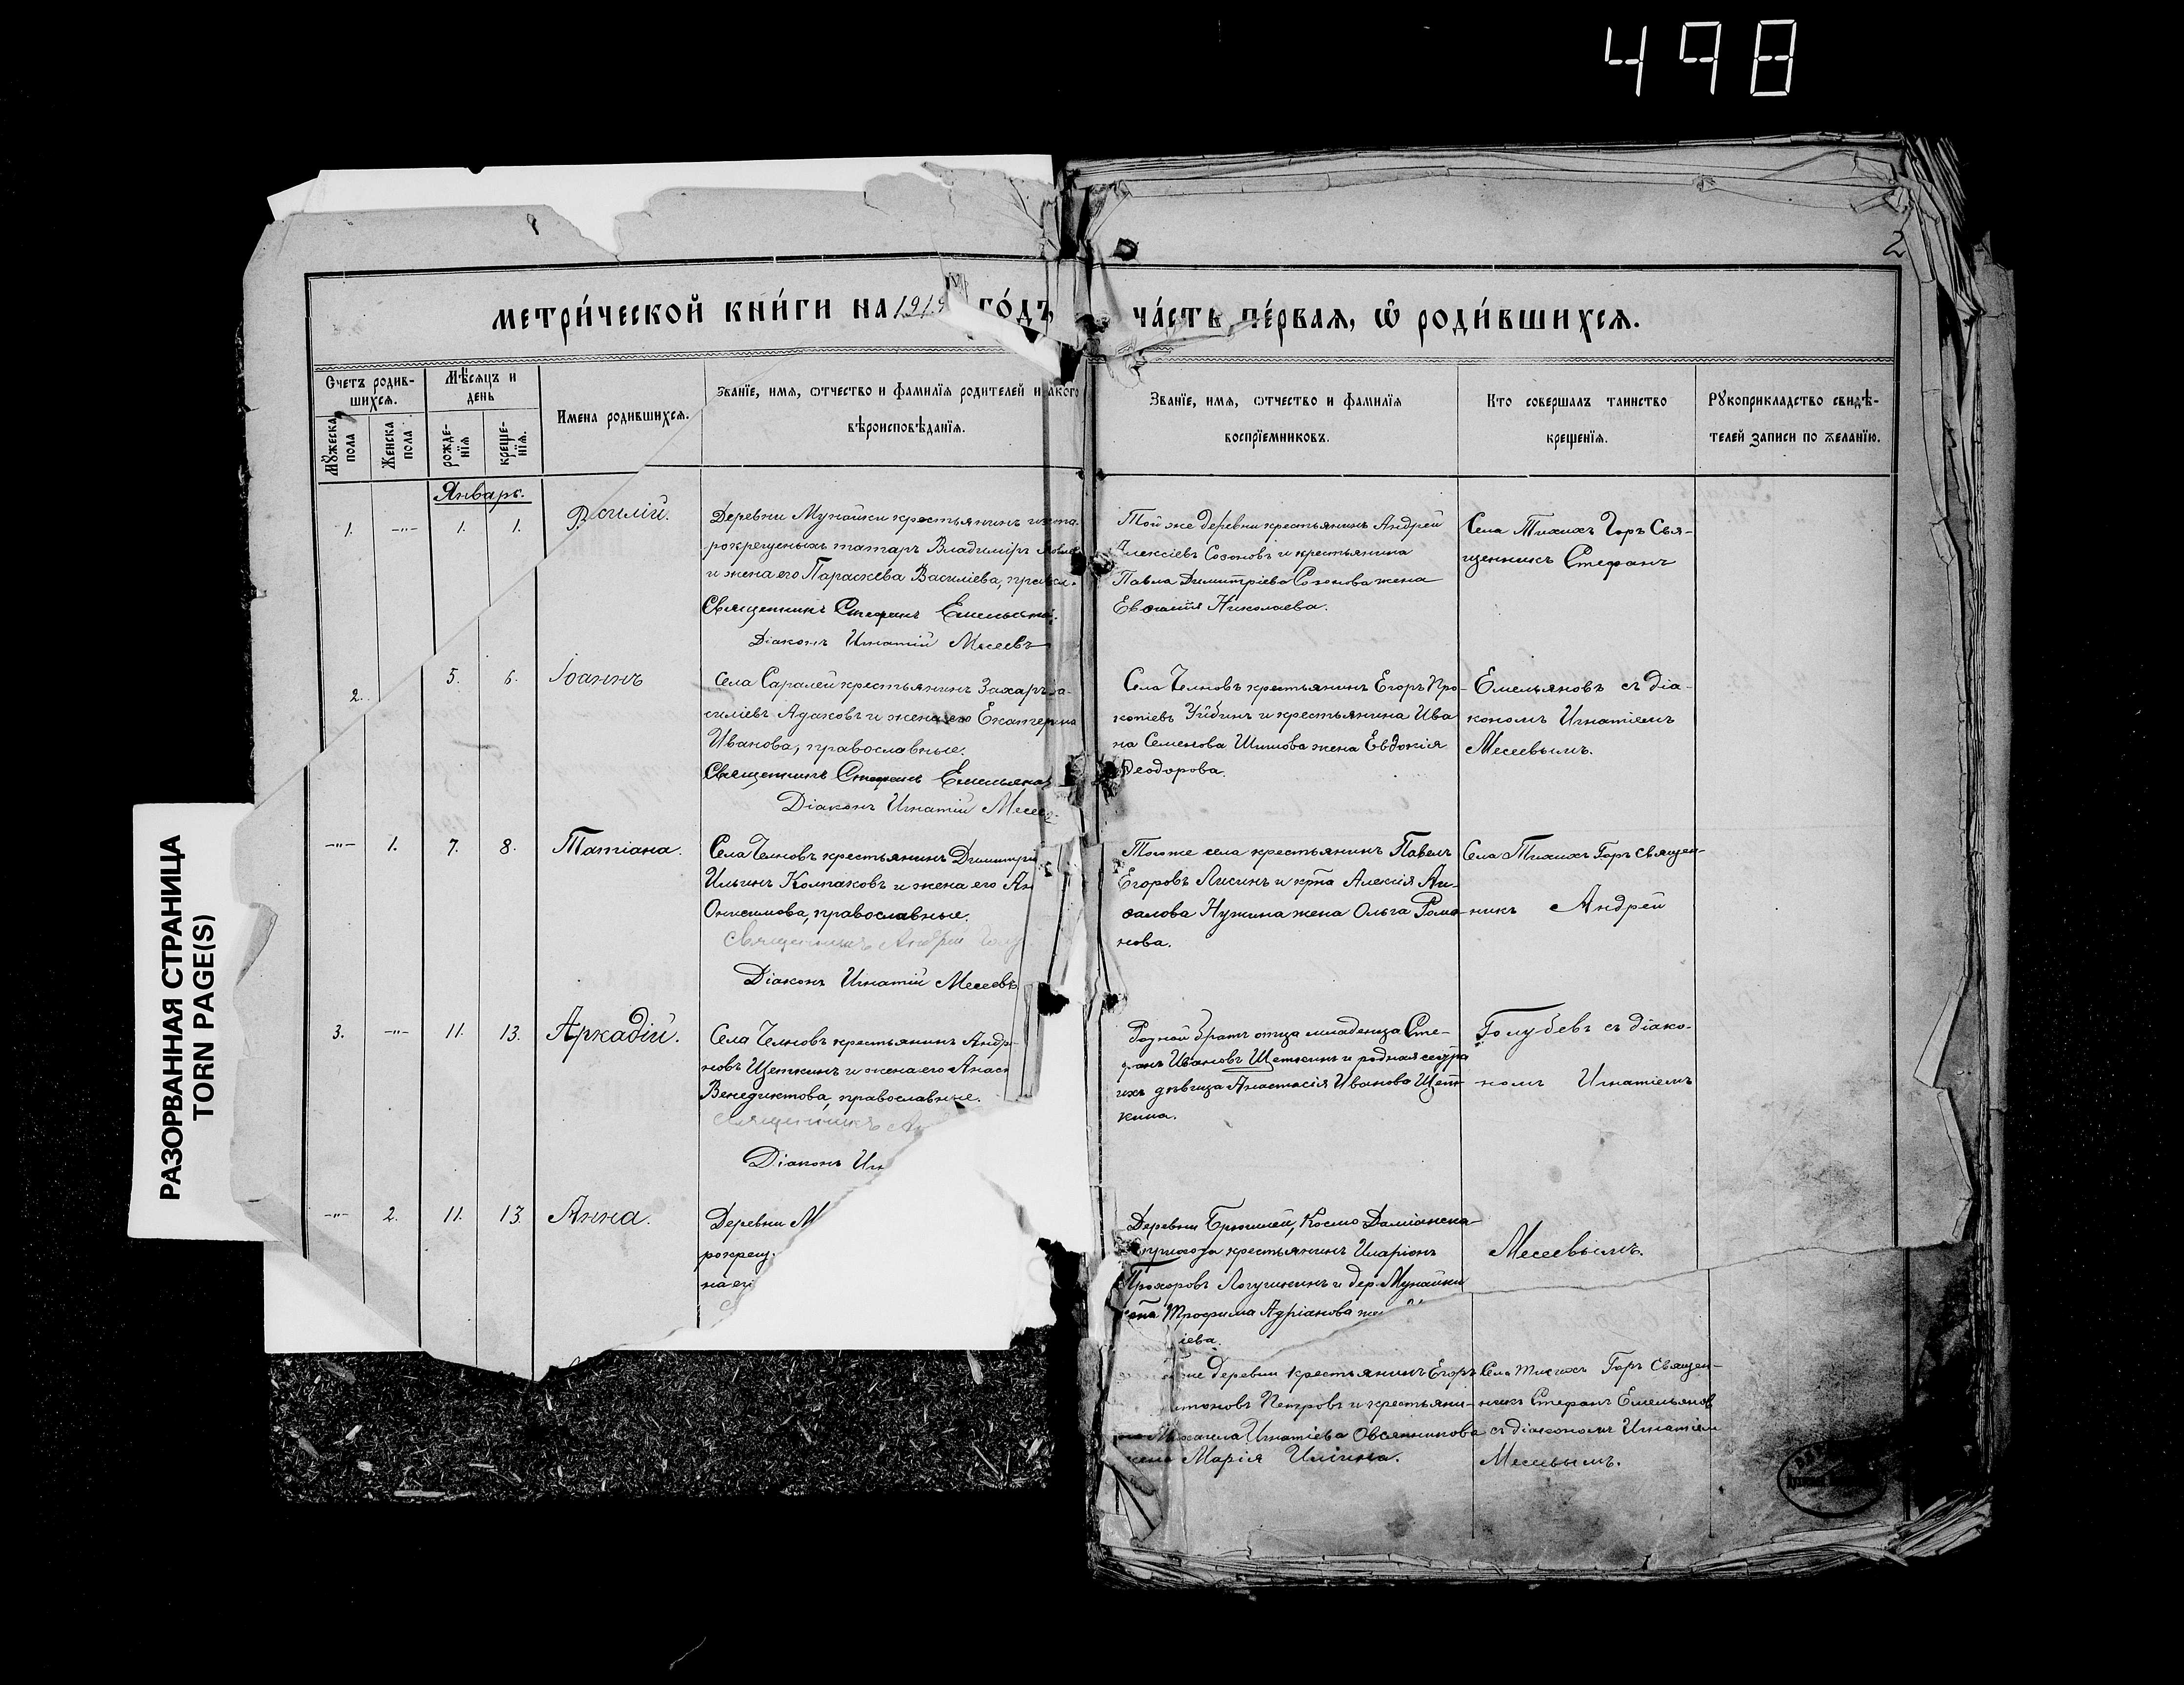 498
2
МЕТРИ́ЧЕСКОЙ КНИ́ГИ НА 191 ГО́ДЪ,
ЧА́СТЬ ПЕ́РВАЯ, Ѡ҆ РОДИ́ВШИХСЯ.
Счетъ родив-
шихся.
Мужеска
пола
Женска
пола
Мѣсяцъ и
день
рожде-
нїя
креще-
нїя.
Имена родившихся.
Званїе, имя, ѡтчество и фамилїя родителей и какого
вѣроисповѣданїя.
Званїе, имя, ѡтчество и фамилїя
воспрїемниковъ.
Кто совершалъ таинство
крещенїя.
Рукоприкладство свидѣ-
телей записи по желанїю.
Январь.
1. -"- 1. 1.
силій.
Деревни Мунайки крестьянинъ
рокрещеныхъ татаръ Владиміръ
и жена его Параскева Василіева,
Священникъ Стефанъ
Діаконъ Игнатій Мосеевъ
Той же деревни крестьянинъ Андрей
Алексіевъ Созоновъ и крестьянина
Павла Димитріева Созонова жена
Николаева.
Села Тихихъ Горъ Свя-
щенникъ Стефанъ
2. 5. 6. Іоаннъ
Села Саралей крестьянинъ Захаръ Ва-
силіевъ Адаковъ и жена его Екатерина
Иванова, православные.
Священникъ Стефанъ Емельянов
Діаконъ Игнатій
Села Челновъ крестьянинъ Егоръ Про-
копіевъ и крестьянина Ива
на Семенова Шишова жена Евдокія
Ѳеодорова.
Емельяновъ съ діа-
кономъ Игнатіемъ
Мосеевымъ.
-"- 1. 7. 8. Татіана.
Села Челновъ крестьянинъ Димитрій
Ильинъ Колпаковъ и жена его Ан
Онисимова, православные.
Священникъ Андрей
Діаконъ Игнатій Мосеевъ
Того же села крестьянинъ Павелъ
Егоровъ Лисинъ и кр-на Алексія
Нужина жена Ольга Рома-
нова.
Села Тихихъ Горъ Священ-
никъ Андрей
3. -"- 11. 13. Аркадій.
Села Челновъ крестьянинъ Андр
новъ Щеткинъ и жена его Анас
Венедиктова, православные.
Священникъ
Діаконъ Иг
Родной братъ отца младенца Сте-
фанъ Ивановъ Щеткинъ и родная сестра
ихъ дѣвица Анастасія Иванова Щет-
кина.
Голубевъ съ діако-
номъ Игнатіемъ
-"- 2. 11. 13. Анна.
Деревни М
рокрещ.
на его
Деревни Космо-Даміанска
прихода крестьянинъ Иларіонъ
Прохоровъ Логушкинъ и дер. Мунайки
Трофима Адріанова
іева.
Мосеевымъ.
же деревни крестьянинъ Егоръ
Петровъ и крестьяни-
Игнатіева Овсянникова
жена Марія
Села Тихихъ Горъ Священ-
никъ Стефанъ Емельянов
съ діакономъ Игнатіем
Мосеевымъ.
РАЗОРВАННАЯ СТРАНИЦА
TORN PAGE(S)